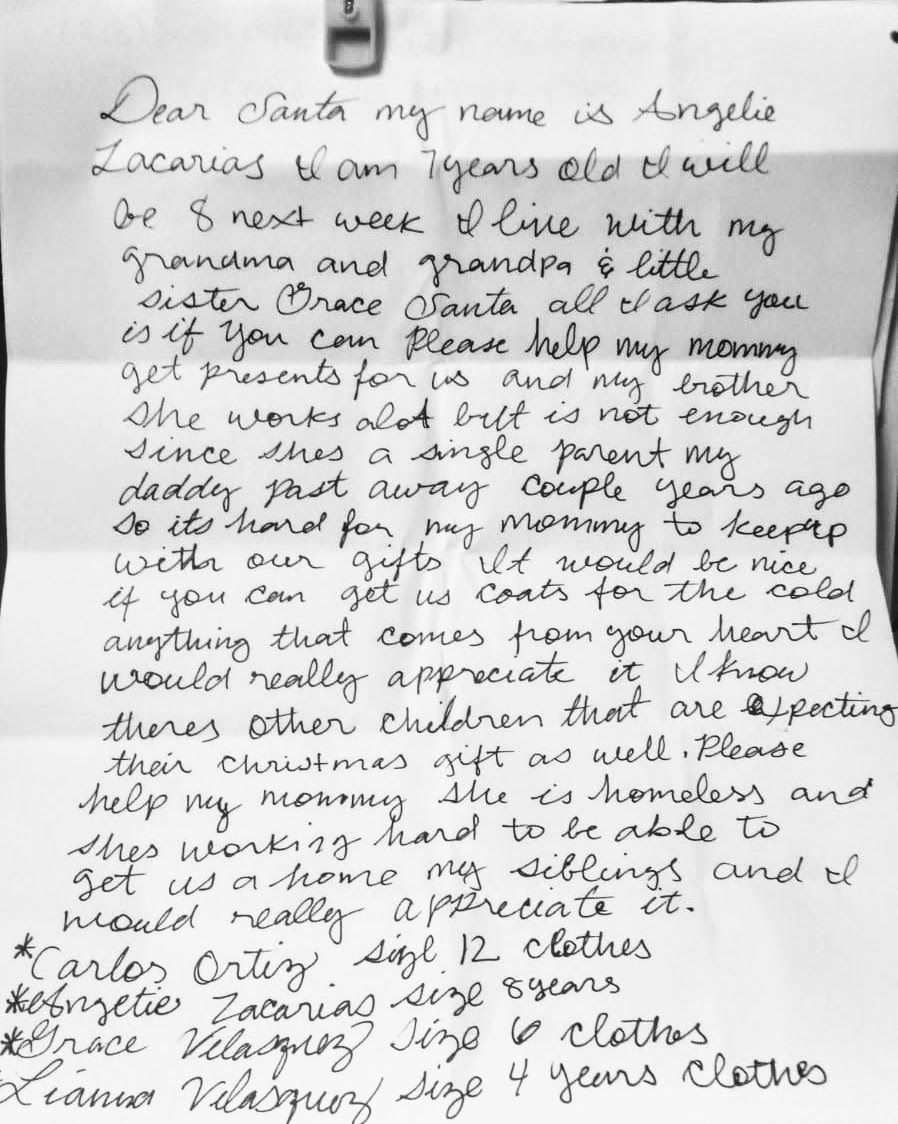 Dear Santa my name is Angelie
Zacarias I am 7 years old I will
be 8 next week I live with my
grandma and grandpa & little
sister Grace Santa all I ask you
is if you can Please help my mommy
get presents for us and my brother
She works alot but is not enough
since shes a single parent my
daddy past away couple years ago
so its hard for my mommy to keep up
with our gifts It would be nice
if you can get us coats for the cold
anything that comes from your heart I
would really appreciate it I know
theres other children that are expecting
their christmas gift as well. Please
help my mommy she is homeless and
shes working hard to be able to
get us a home my siblings and I
would really appreciate it.
*Carlos Ortiz size 12 clothes
*Angelie Zacarias size 8 years
*Grace Velasquez Size 6 clothes
Lianna Velasquez size 4 years clothes